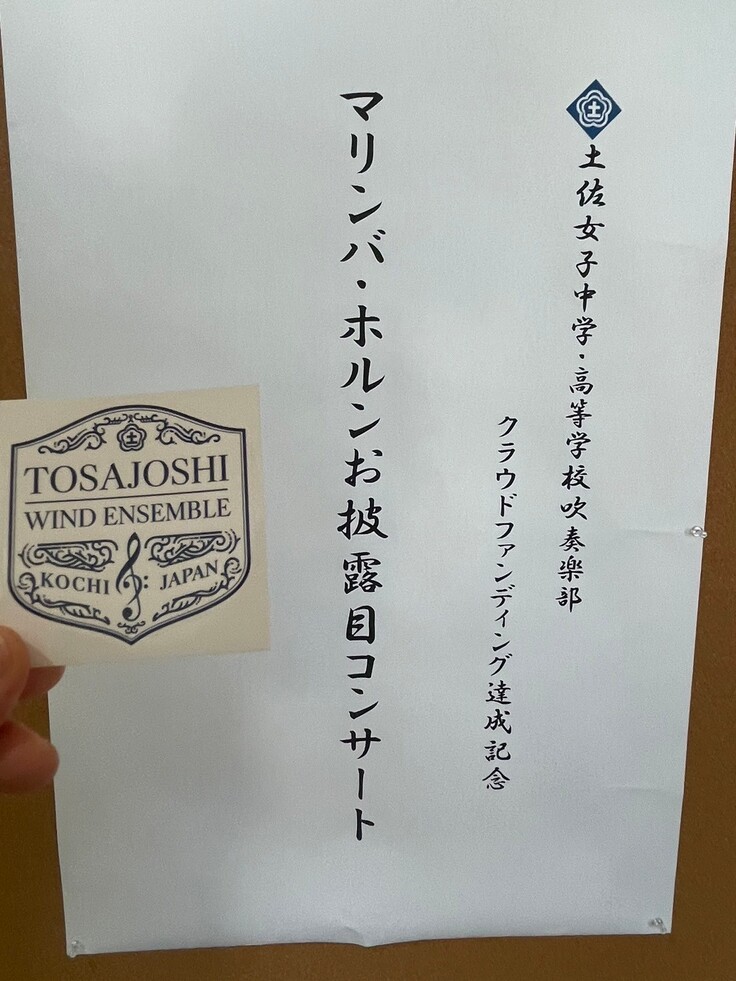 土佐女子中学・高等学校吹奏楽部
クラウドファンディング達成記念
マリンバ・ホルンお披露目コンサート
土
TOSAJOSHI
WIND ENSEMBLE
KOCHI JAPAN
土